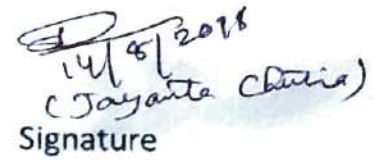 14/8/2018
(Jayanta Chutia)
Signature